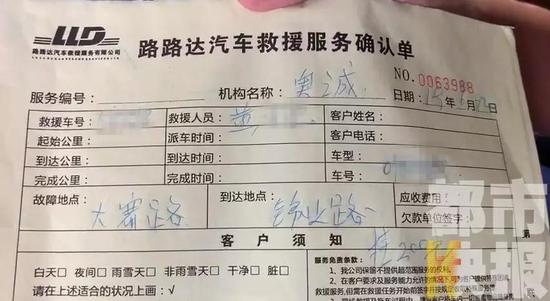 LLD
路路达汽车救援服务有限公司
路路达汽车救援服务确认单
NO.0063988
服务编号: 机构名称: 奥诚 日期: 15年 月 日
救援车号: 救援人员: 黄 客户姓名:
起始公里: 派车时间: 客户电话:
到达公里: 到达时间: 车型:
完成公里: 完成时间: 车号:
故障地点: 到达地点: 应收费用:
大寨路 锦业路 欠款单位签字:
客户须知
第
白天□ 夜间□ 雨雪天□ 非雨雪天□ 干净□ 脏□
请在以上适合的状况上画:√
服务免责条款:
1、我公司保留不提供超范围服务的权利。
都市快报